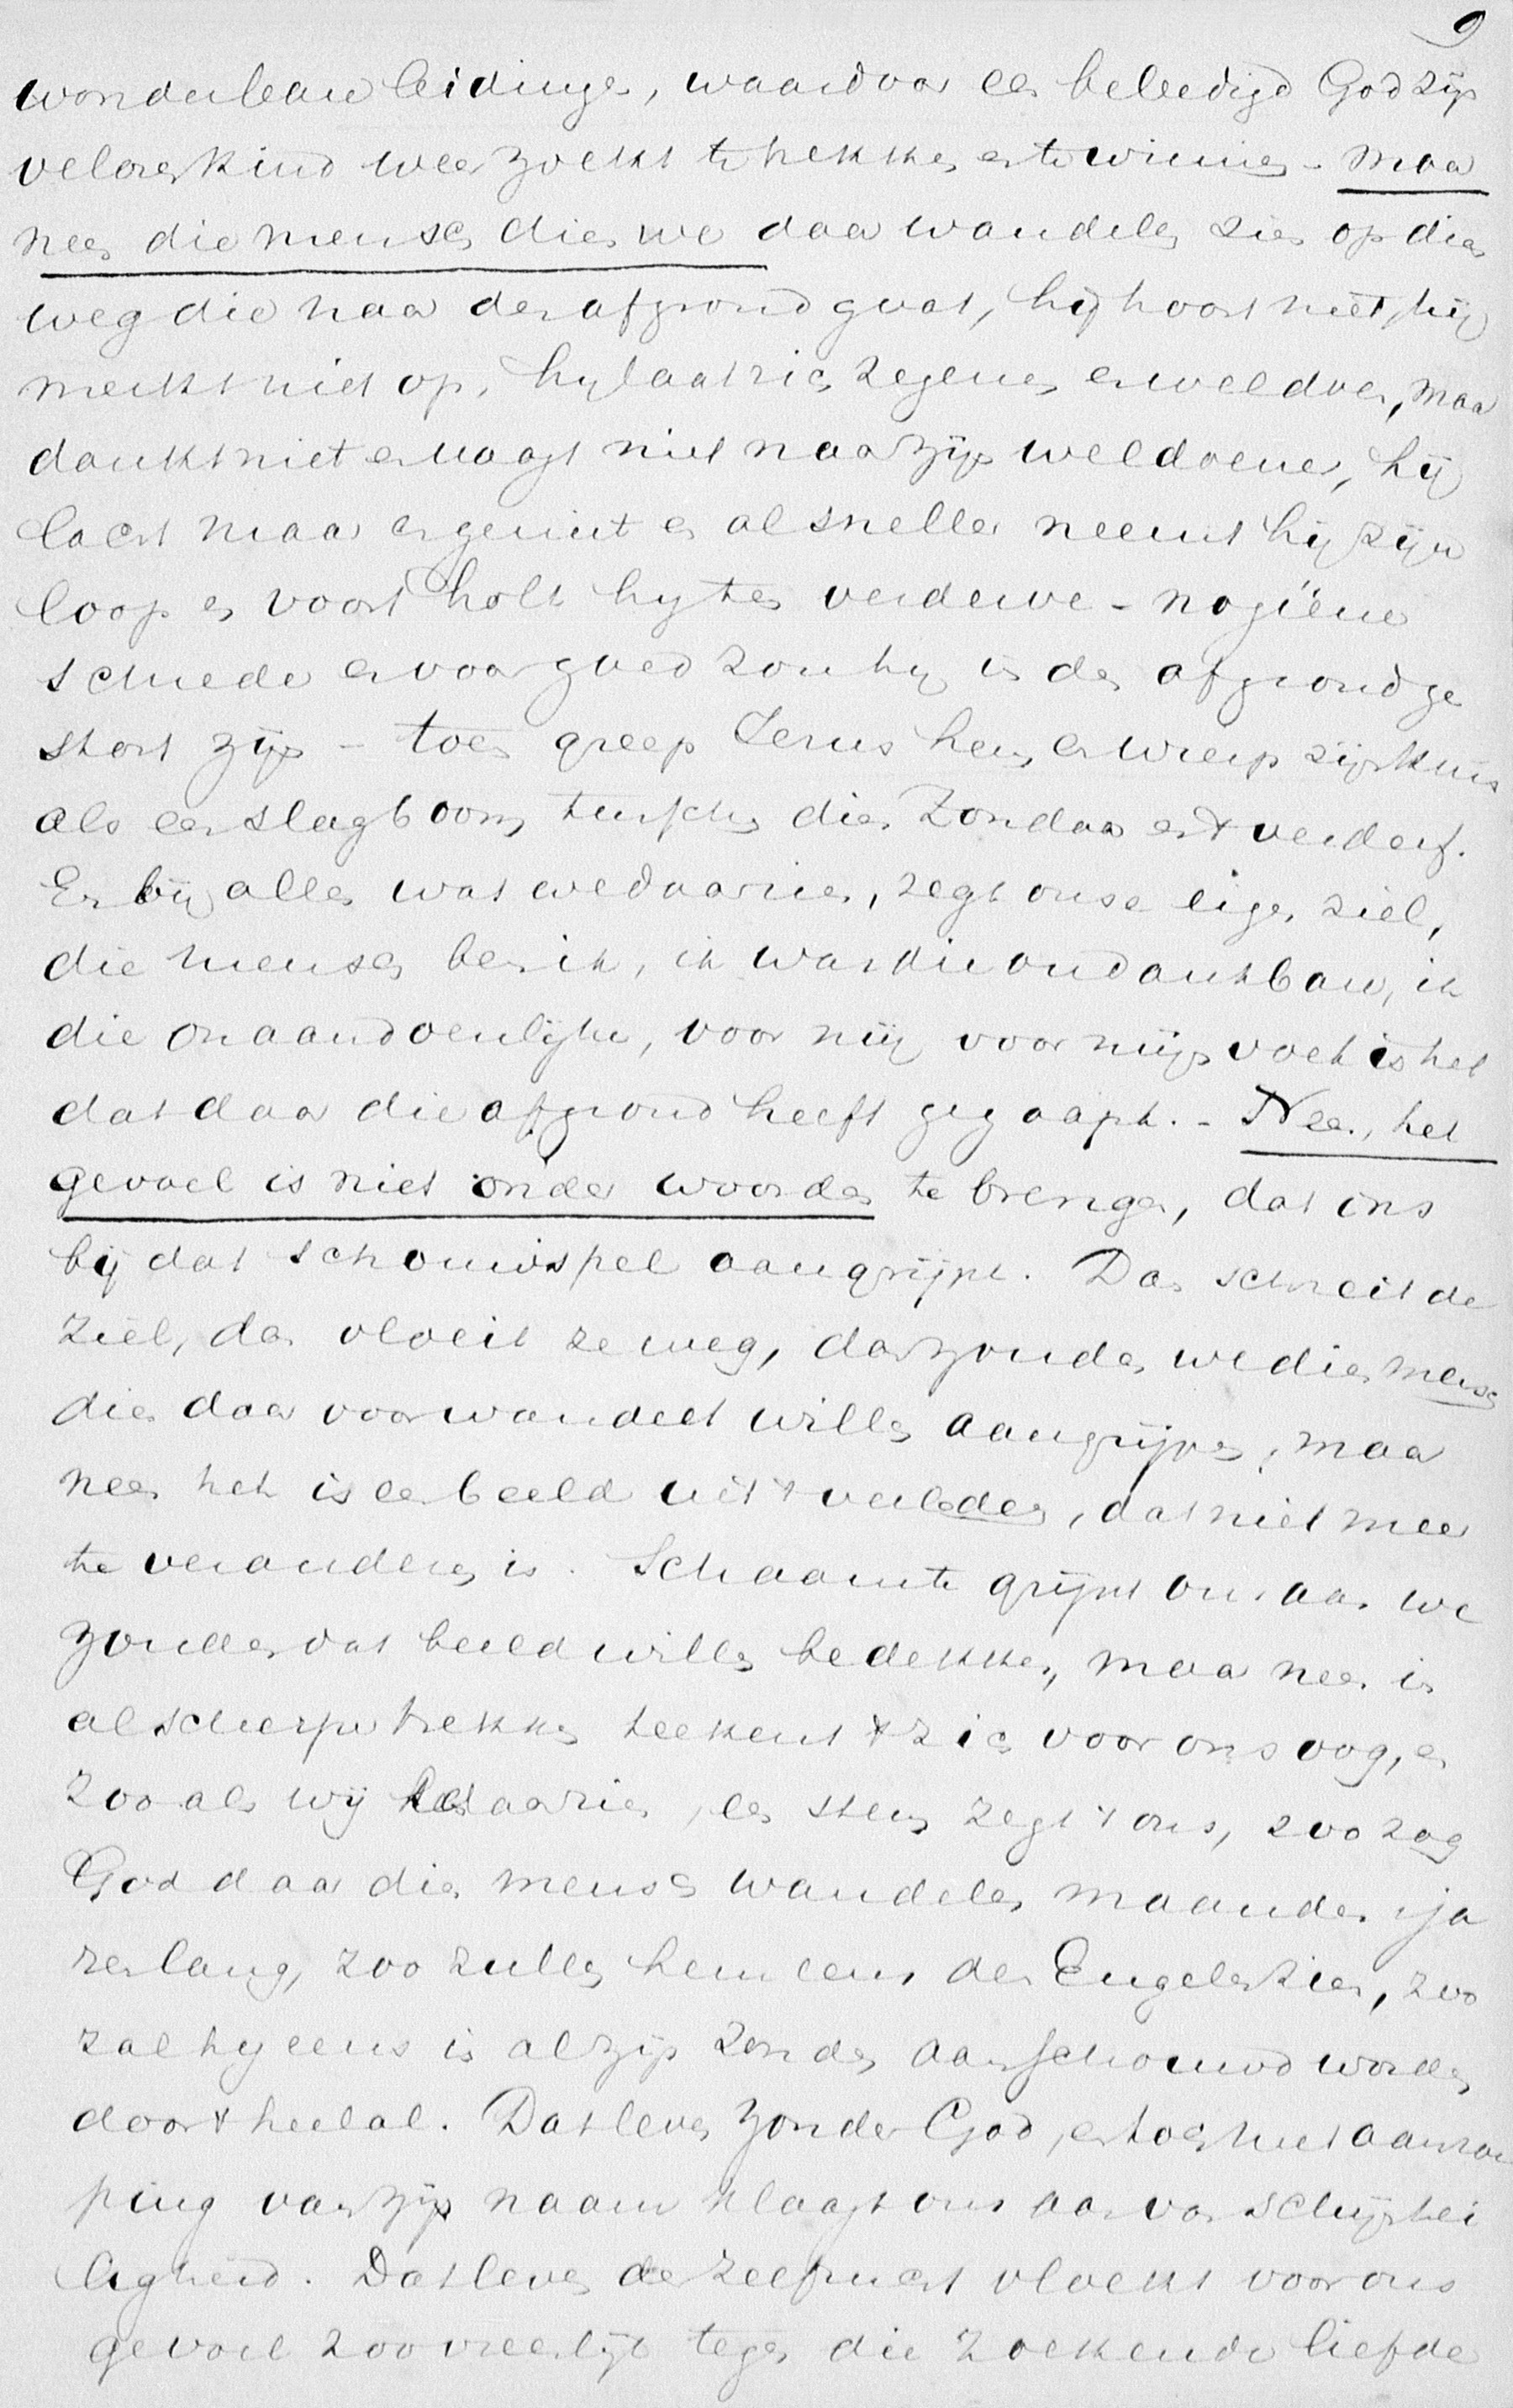 9
wonderbare leidingen, waardoor een beleedigd God zijn
verloren kind weer zoekt te trekken en te winnen - maar
neen die mensch dien we daar wandelen zien op dien
weg die naar den afgrond gaat, hij hoort niet, hij
merkt niet op, hij laat zich zegenen en weldoen, maar
dankt niet en vraagt niet naar zijn weldoener, hij
lacht maar en geniet en al sneller neemt hij zijn
loop en voort holt hij ten verderve - nog ééne
schrede en voor goed zou hij in den afgrond ge
stort zijn - toen greep Jezus hem en wierp zijn kruis
als een slagboom tusschen dien Zondaar en 't verderf.
En bij alles wat we daar zien, zegt onze eigen ziel,
die mensch ben ik, ik was die ondankbare, ik
die onaandoenlijke, voor mij voor mijn voet is het
dat daar die afgrond heeft gegaapt. - Neen, het
gevoel is niet onder woorden te brengen, dat ons
bij dat schouwspel aangrijpt. Dan schreit de
ziel, dan vloeit ze weg, dan zouden we dien mensch
die daar voortwandelt willen aangrijpen, maar
neen het is een beeld uit 't verleden, dat niet meer
te veranderen is. Schaamte grijpt ons aan we
zouden dat beeld willen bedekken, maar neen in
al scherper trekken teekent 't zich voor ons oog, en
zooals wij het daar zien, een stem zegt 't ons, zoo zag
God daar dien mensch wandelen maanden ja
ren lang, zoo zullen hem eens de Engelen zien, zoo
zal hij eens in al zijn zonden aanschouwd worden
door 't heelal. Dat leven zonder God, en toch met aanroe
ping van zijn naam klaagt ons aan van schijnhei
ligheid. Dat leven der zelfzucht vloekt voor ons
gevoel zoo vreeslijk tegen die zoekende liefde